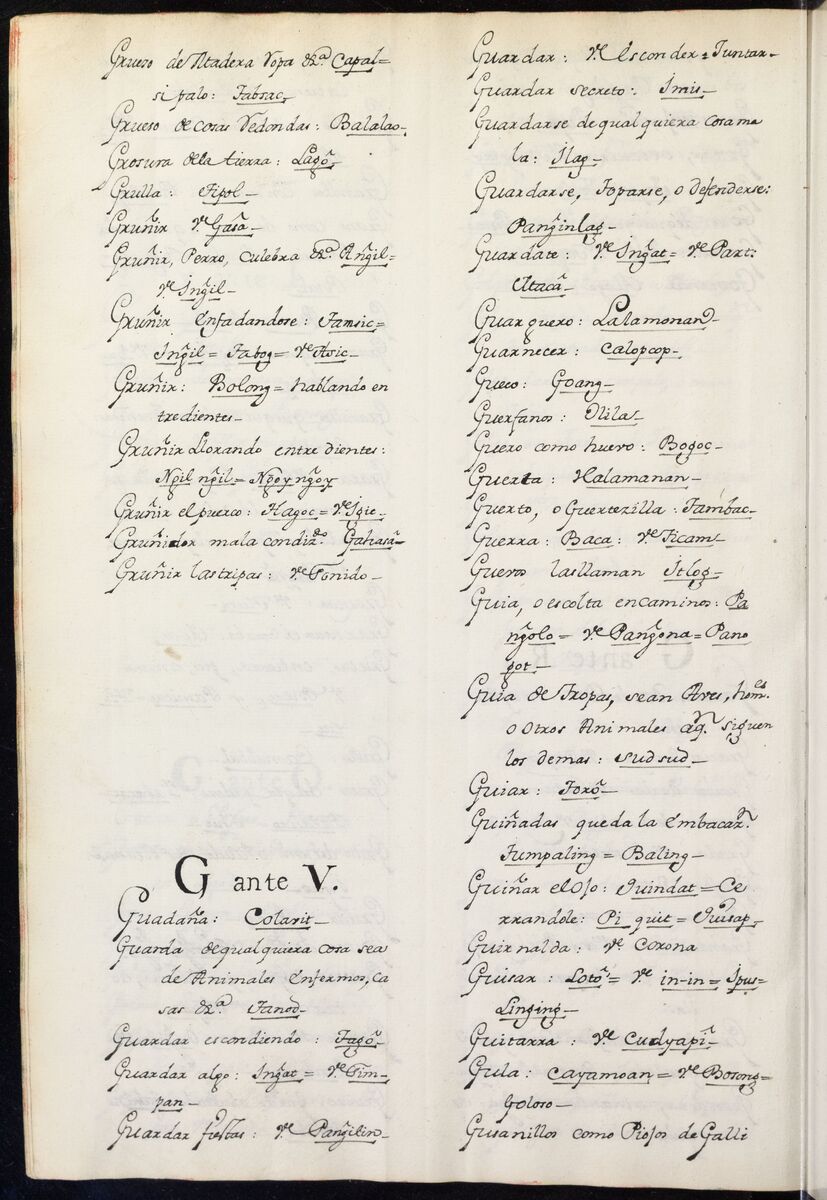 Grueso de Madera Ropa &ᵃ. Capal=
si palo: Tabsac,
Grueso de cosas redondas: Balalao-
Grosura dela tierra: Lagõ-
Grulla: Tipol-
Gruñir Vᵉ Gasã-
Gruñir, Perro, culebra &ᵃ. Ang̃il=
Vᵉ Ing̃il-
Gruñir enfadandose: Tamsic=
Ing̃il= Tabog= Vᵉ Asic-
Gruñir: Bolong= hablando en
tredientes-
Gruñir Llorando entre dientes:
Ng̃il ng̃il= Ng̃oy ng̃oy
Gruñir el puerco: Hagoc= Vᵉ Igic-
Gruñidor mala condizᵈᵒ. Gahasã-
Gruñir lastripas: Vᵉ Tonido-
G ante V.
Guadaña: Colarit-
Guarda de qualquiera cosa sea
de Animales enfermos, ca
sas &ᵃ. Tanod-
Guardar escondiendo: Tagõ-
Guardar algo: Ing̃at= Vᵉ Tim-
pan-
Guardar fiestas: Vᵉ Pang̃ilin-
Guardar: Vᵉ Esconder= Juntar-
Guardar secreto: Imis-
Guardarse de qualquiera cosa ma
la: Ilag-
Guardarse, Toparse, o defenderse:
Pang̃inlag-
Guardate: Vᵉ Ing̃at= Vᵉ Part:
Atacã-
Guarguero: Lalamonan-
Guarnecer: Calopcop-
Gueco: Goang-
Guerfanos: Olila-
Guero como huevo: Bogoc-
Guerta: Halamanan-
Guerto, o Guertezilla: Tambac-
Guerra: Baca: Vᵉ Ticam-
Guevos las llaman Itlog-
Guia, o escolta en caminos: Pa
ng̃olo= Vᵉ Pang̃ona= Pano
got-
Guia de Tropas, sean Aves, homᵉˢ.
o otros Animales aqⁿ. siguen
los demas: sudsud-
Guiar: Torõ-
Guiñadas que da la Embacarⁿ.
Tumpaling= Baling-
Guiñar el Ojo: Quindat= Ce
rrandole: Pi quit= Quisap-
Guirnalda: Vᵉ Corona
Guisar: Lotõ= Vᵉ in-in= Ipus=
Linging-
Guitarra: Vᵉ Cudyapĩ-
Gula: Cayamoan= Vᵉ Bosong=
Goloso-
Gusanillos como Piojos de Galli